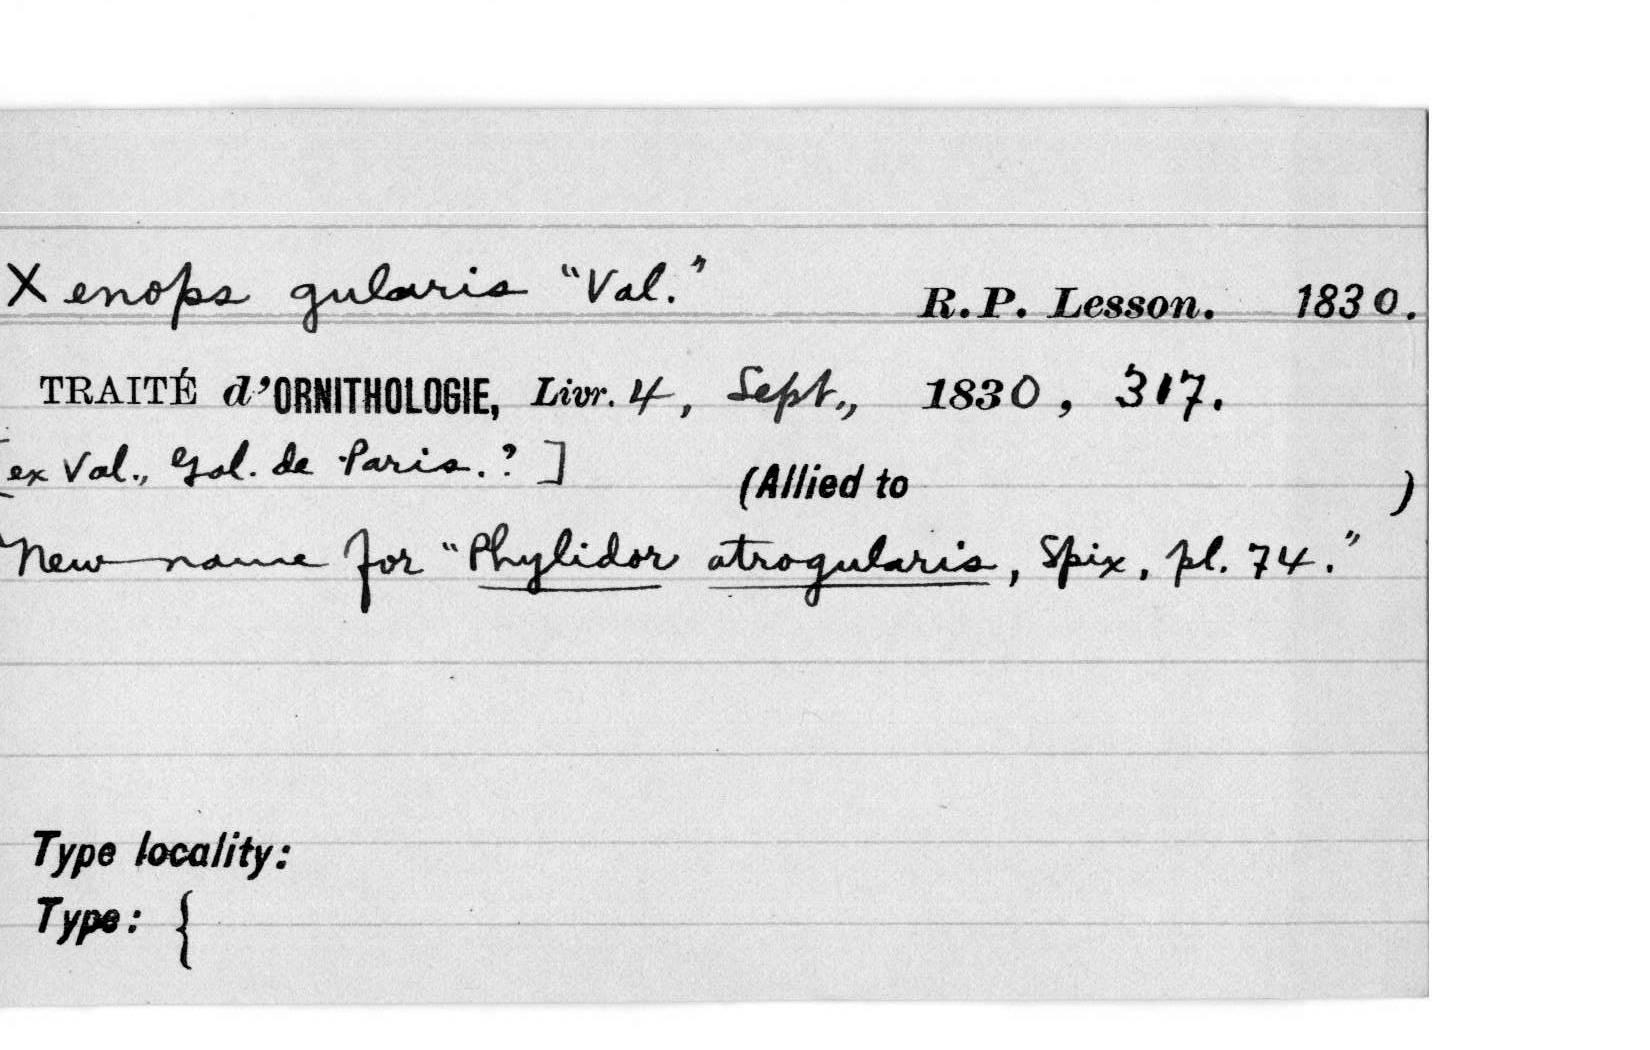 Xenops gularis "Val." R.P. Lesson. 1830.
TRAITÉ d'ORNITHOLOGIE, Livr. 4, Sept., 1830, 317.
[ex Val., Gal. de Paris.?] (Allied to )
New name for "Phylidor atrogularis, Spix, pl. 74."
Type locality:
Type: {